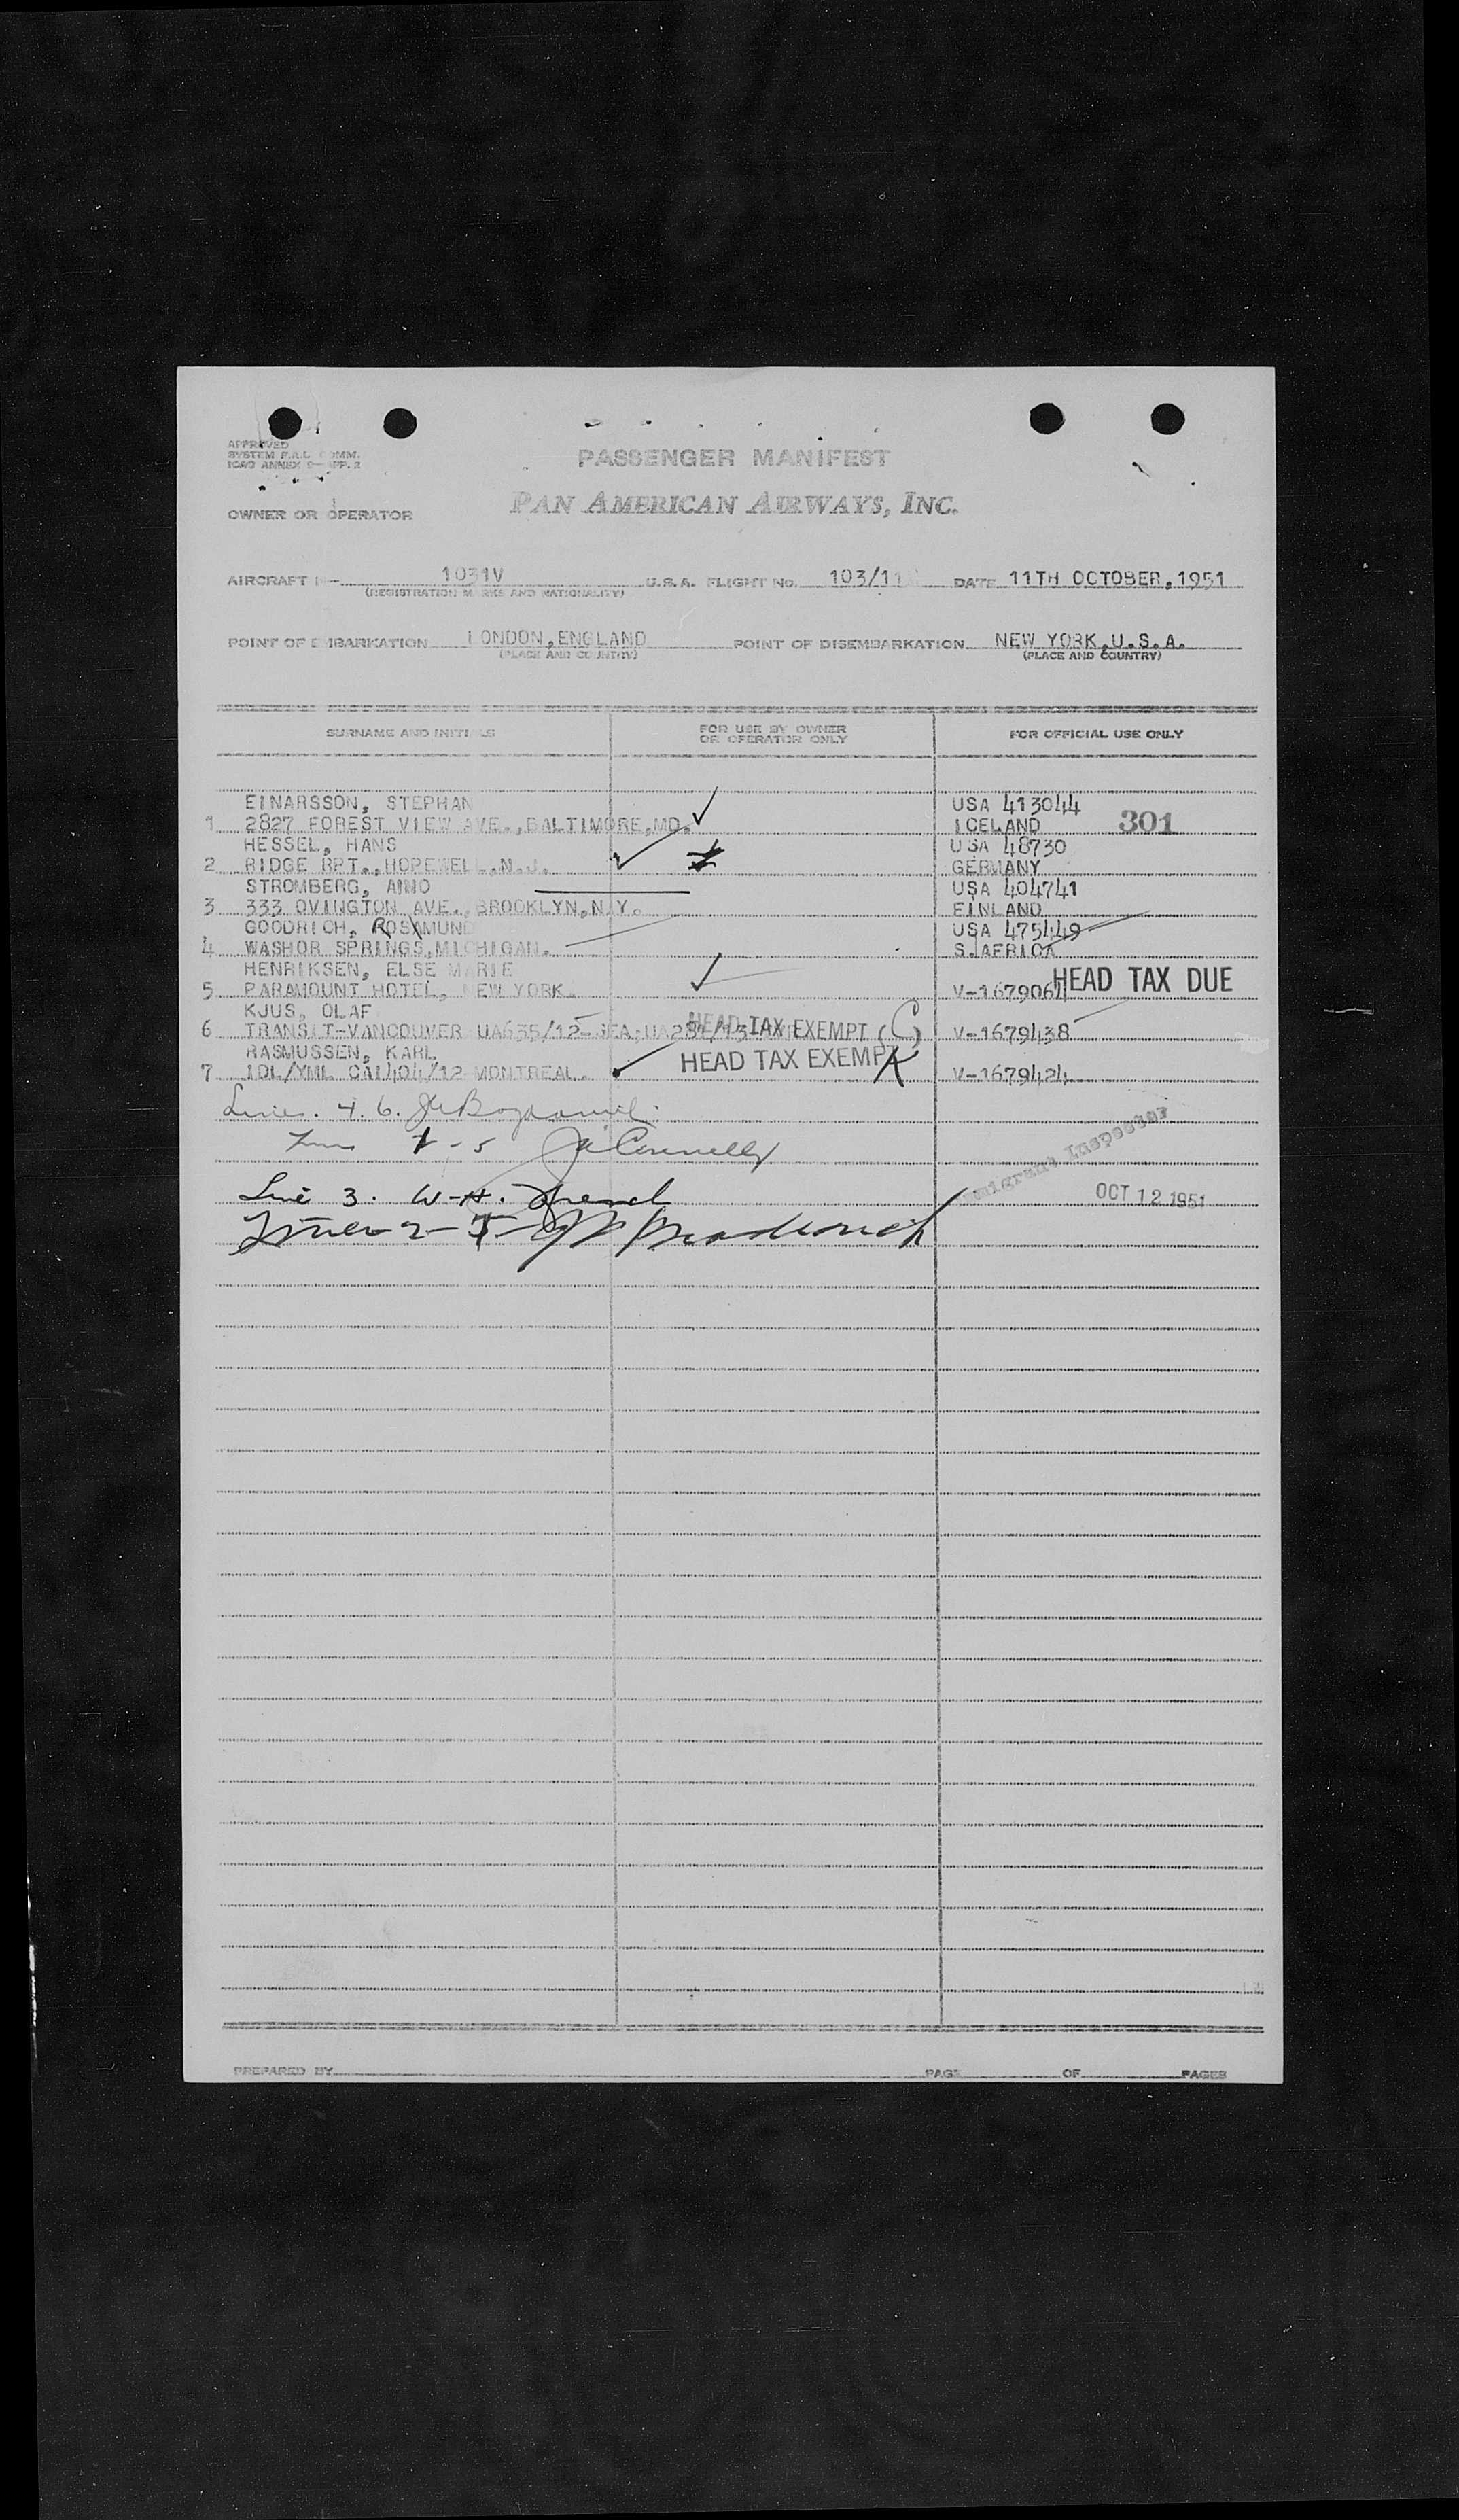 APPROVED
SYSTEM F.A.L. COMM.
ICAO ANNEX 9—APP. 2
PASSENGER MANIFEST
OWNER OR OPERATOR PAN AMERICAN AIRWAYS, INC.
AIRCRAFT 1031V U.S.A. FLIGHT No. 103/11 DATE 11TH OCTOBER, 1951
(REGISTRATION MARKS AND NATIONALITY)
POINT OF EMBARKATION LONDON, ENGLAND POINT OF DISEMBARKATION NEW YORK, U.S.A.
(PLACE AND COUNTRY) (PLACE AND COUNTRY)
SURNAME AND INITIALS FOR USE BY OWNER OR OPERATOR ONLY FOR OFFICIAL USE ONLY
EINARSSON, STEPHAN USA 413044
1 2827 FOREST VIEW AVE., BALTIMORE, MD. ICELAND 301
HESSEL, HANS USA 48730
2 RIDGE RPT., HOPEWELL, N.J. GERMANY
STROMBERG, AINO USA 404741
3 333 OVINGTON AVE., BROOKLYN, N.Y. FINLAND
GOODRICH, ROSAMUND USA 475449
4 WASHOR SPRINGS, MICHIGAN. S. AFRICA
HENRIKSEN, ELSE MARIE HEAD TAX DUE
5 PARAMOUNT HOTEL, NEW YORK. V-1679064
KJUS, OLAF
6 TRANSIT-VANCOUVER UA635/12-SEA; HEAD TAX EXEMPT (C) V-1679438
RASMUSSEN, KARL HEAD TAX EXEMPT
7 IDL/YML CA1404/12 MONTREAL. V-1679424
Lines. 4. 6.
1 - 5 Connelly
Immigrant Inspector
Line 3. W. H.
OCT 12 1951
Lines 2 - 7
PREPARED BY PAGE OF PAGES